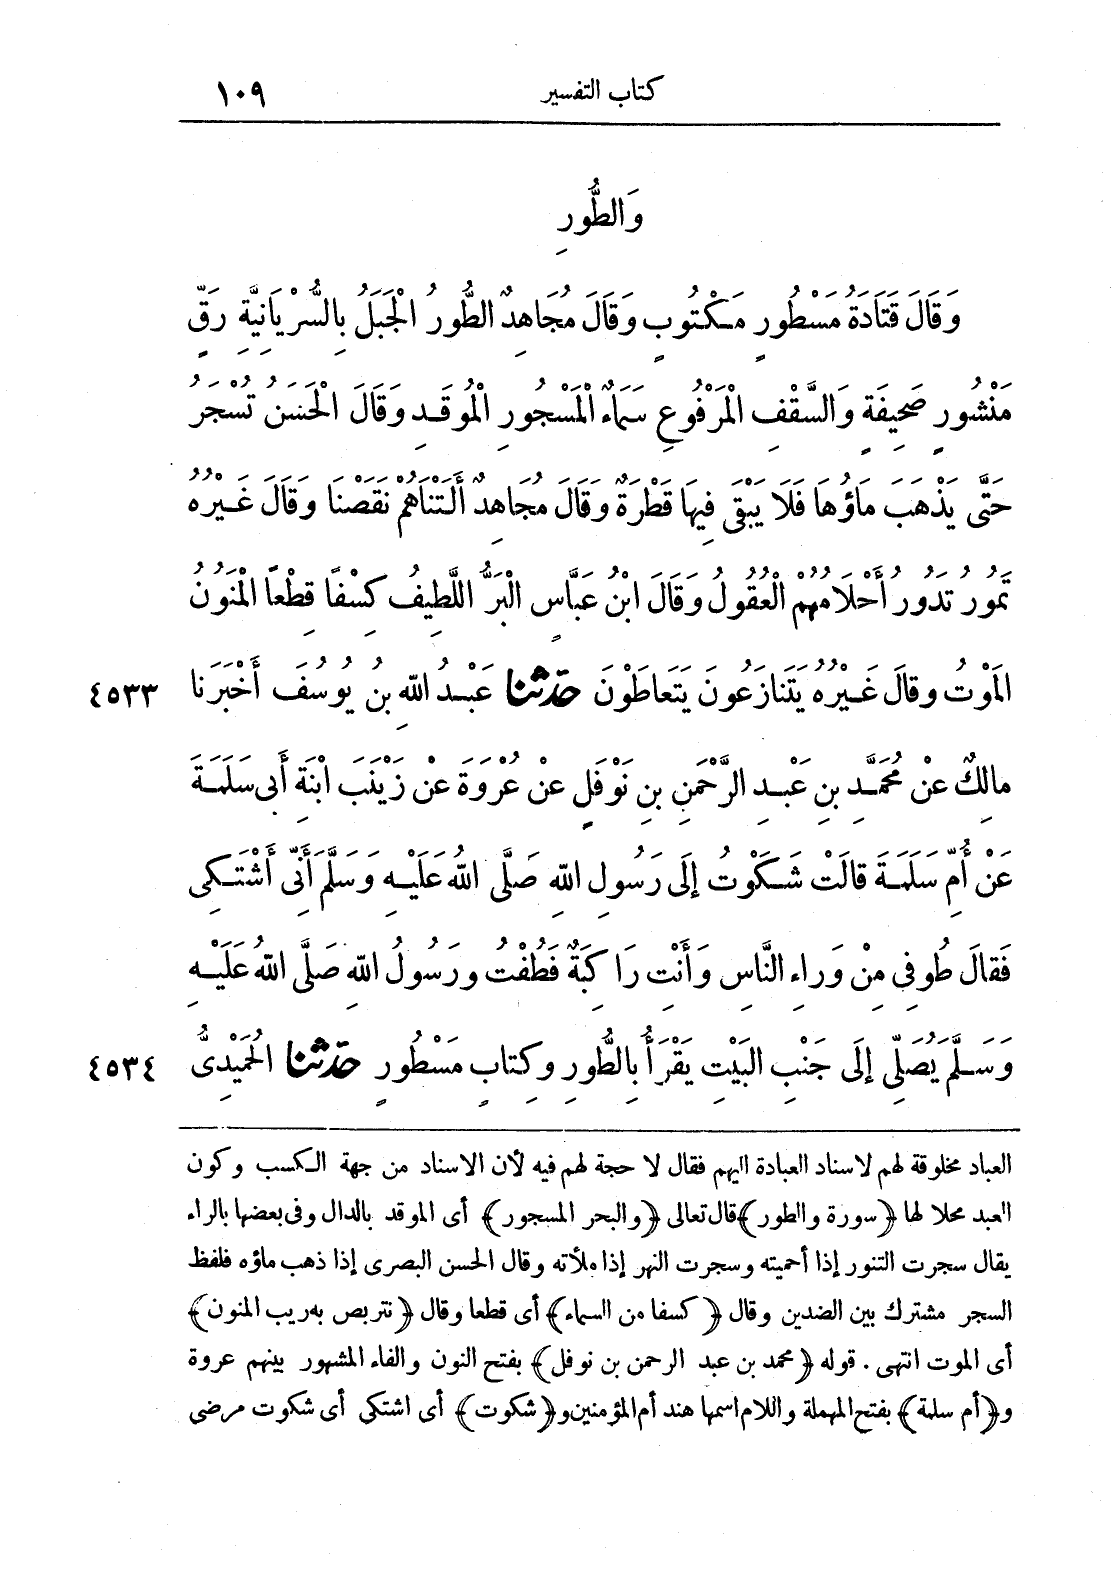 كتاب التفسير ١٠٩
وَالطُّورِ
وَقَالَ قَتَادَةُ مَسْطُورٍ مَكْتُوبٍ وَقَالَ مُجَاهِدٌ الطُّورُ الْجَبَلُ بِالسُّرْيَانِيَّةِ رَقٍّ
مَنْشُورٍ صَحِيفَةٍ وَالسَّقْفِ الْمَرْفُوعِ سَمَاءٌ الْمَسْجُورِ الْمُوقَدِ وَقَالَ الْحَسَنُ تُسْجَرُ
حَتَّى يَذْهَبَ مَاؤُهَا فَلَا يَبْقَى فِيهَا قَطْرَةٌ وَقَالَ مُجَاهِدٌ أَلَتْنَاهُمْ نَقَصْنَا وَقَالَ غَيْرُهُ
تَمُورُ تَدُورُ أَحْلَامُهُمْ الْعُقُولُ وَقَالَ ابْنُ عَبَّاسٍ الْبَرُّ اللَّطِيفُ كِسْفًا قِطْعًا الْمَنُونُ
الْمَوْتُ وَقَالَ غَيْرُهُ يَتَنَازَعُونَ يَتَعَاطَوْنَ حَدَّثَنَا عَبْدُ اللّٰهِ بنُ يُوسُفَ أَخْبَرَنَا ٤٥٣٣
مَالِكٌ عَنْ مُحَمَّدِ بنِ عَبْدِ الرَّحْمَنِ بنِ نَوْفَلٍ عَنْ عُرْوَةَ عَنْ زَيْنَبَ ابْنَةِ أَبِى سَلَمَةَ
عَنْ أُمِّ سَلَمَةَ قَالَتْ شَكَوْتُ إِلَى رَسُولِ اللّٰهِ صَلَّى اللّٰهُ عَلَيْهِ وَسَلَّمَ أَنِّى أَشْتَكِى
فَقَالَ طُوفِى مِنْ وَرَاءِ النَّاسِ وَأَنْتِ رَاكِبَةٌ فَطُفْتُ وَرَسُولُ اللّٰهِ صَلَّى اللّٰهُ عَلَيْهِ
وَسَلَّمَ يُصَلِّى إِلَى جَنْبِ الْبَيْتِ يَقْرَأُ بِالطُّورِ وَكِتَابٍ مَسْطُورٍ حَدَّثَنَا الْحُمَيْدِىُّ ٤٥٣٤
العباد مخلوقة لهم لاسناد العبادة اليهم فقال لا حجة لهم فيه لأن الاسناد من جهة الكسب وكون
العبد محلا لها ﴿سورة والطور﴾ قال تعالى ﴿والبحر المسجور﴾ أى الموقد بالدال وفى بعضها بالراء
يقال سجرت التنور إذا أحميته وسجرت النهر إذا ملأته وقال الحسن البصرى إذا ذهب ماؤه فلفظ
السجر مشترك بين الضدين وقال ﴿كسفا من السماء﴾ أى قطعا وقال ﴿نتربص به ريب المنون﴾
أى الموت انتهى . قوله ﴿محمد بن عبد الرحمن بن نوفل﴾ بفتح النون والفاء المشهور بيتهم عروة
و﴿أم سلمة﴾ بفتح المهملة واللام اسمها هند أم المؤمنين و﴿شكوت﴾ أى اشتكى أى شكوت مرضى